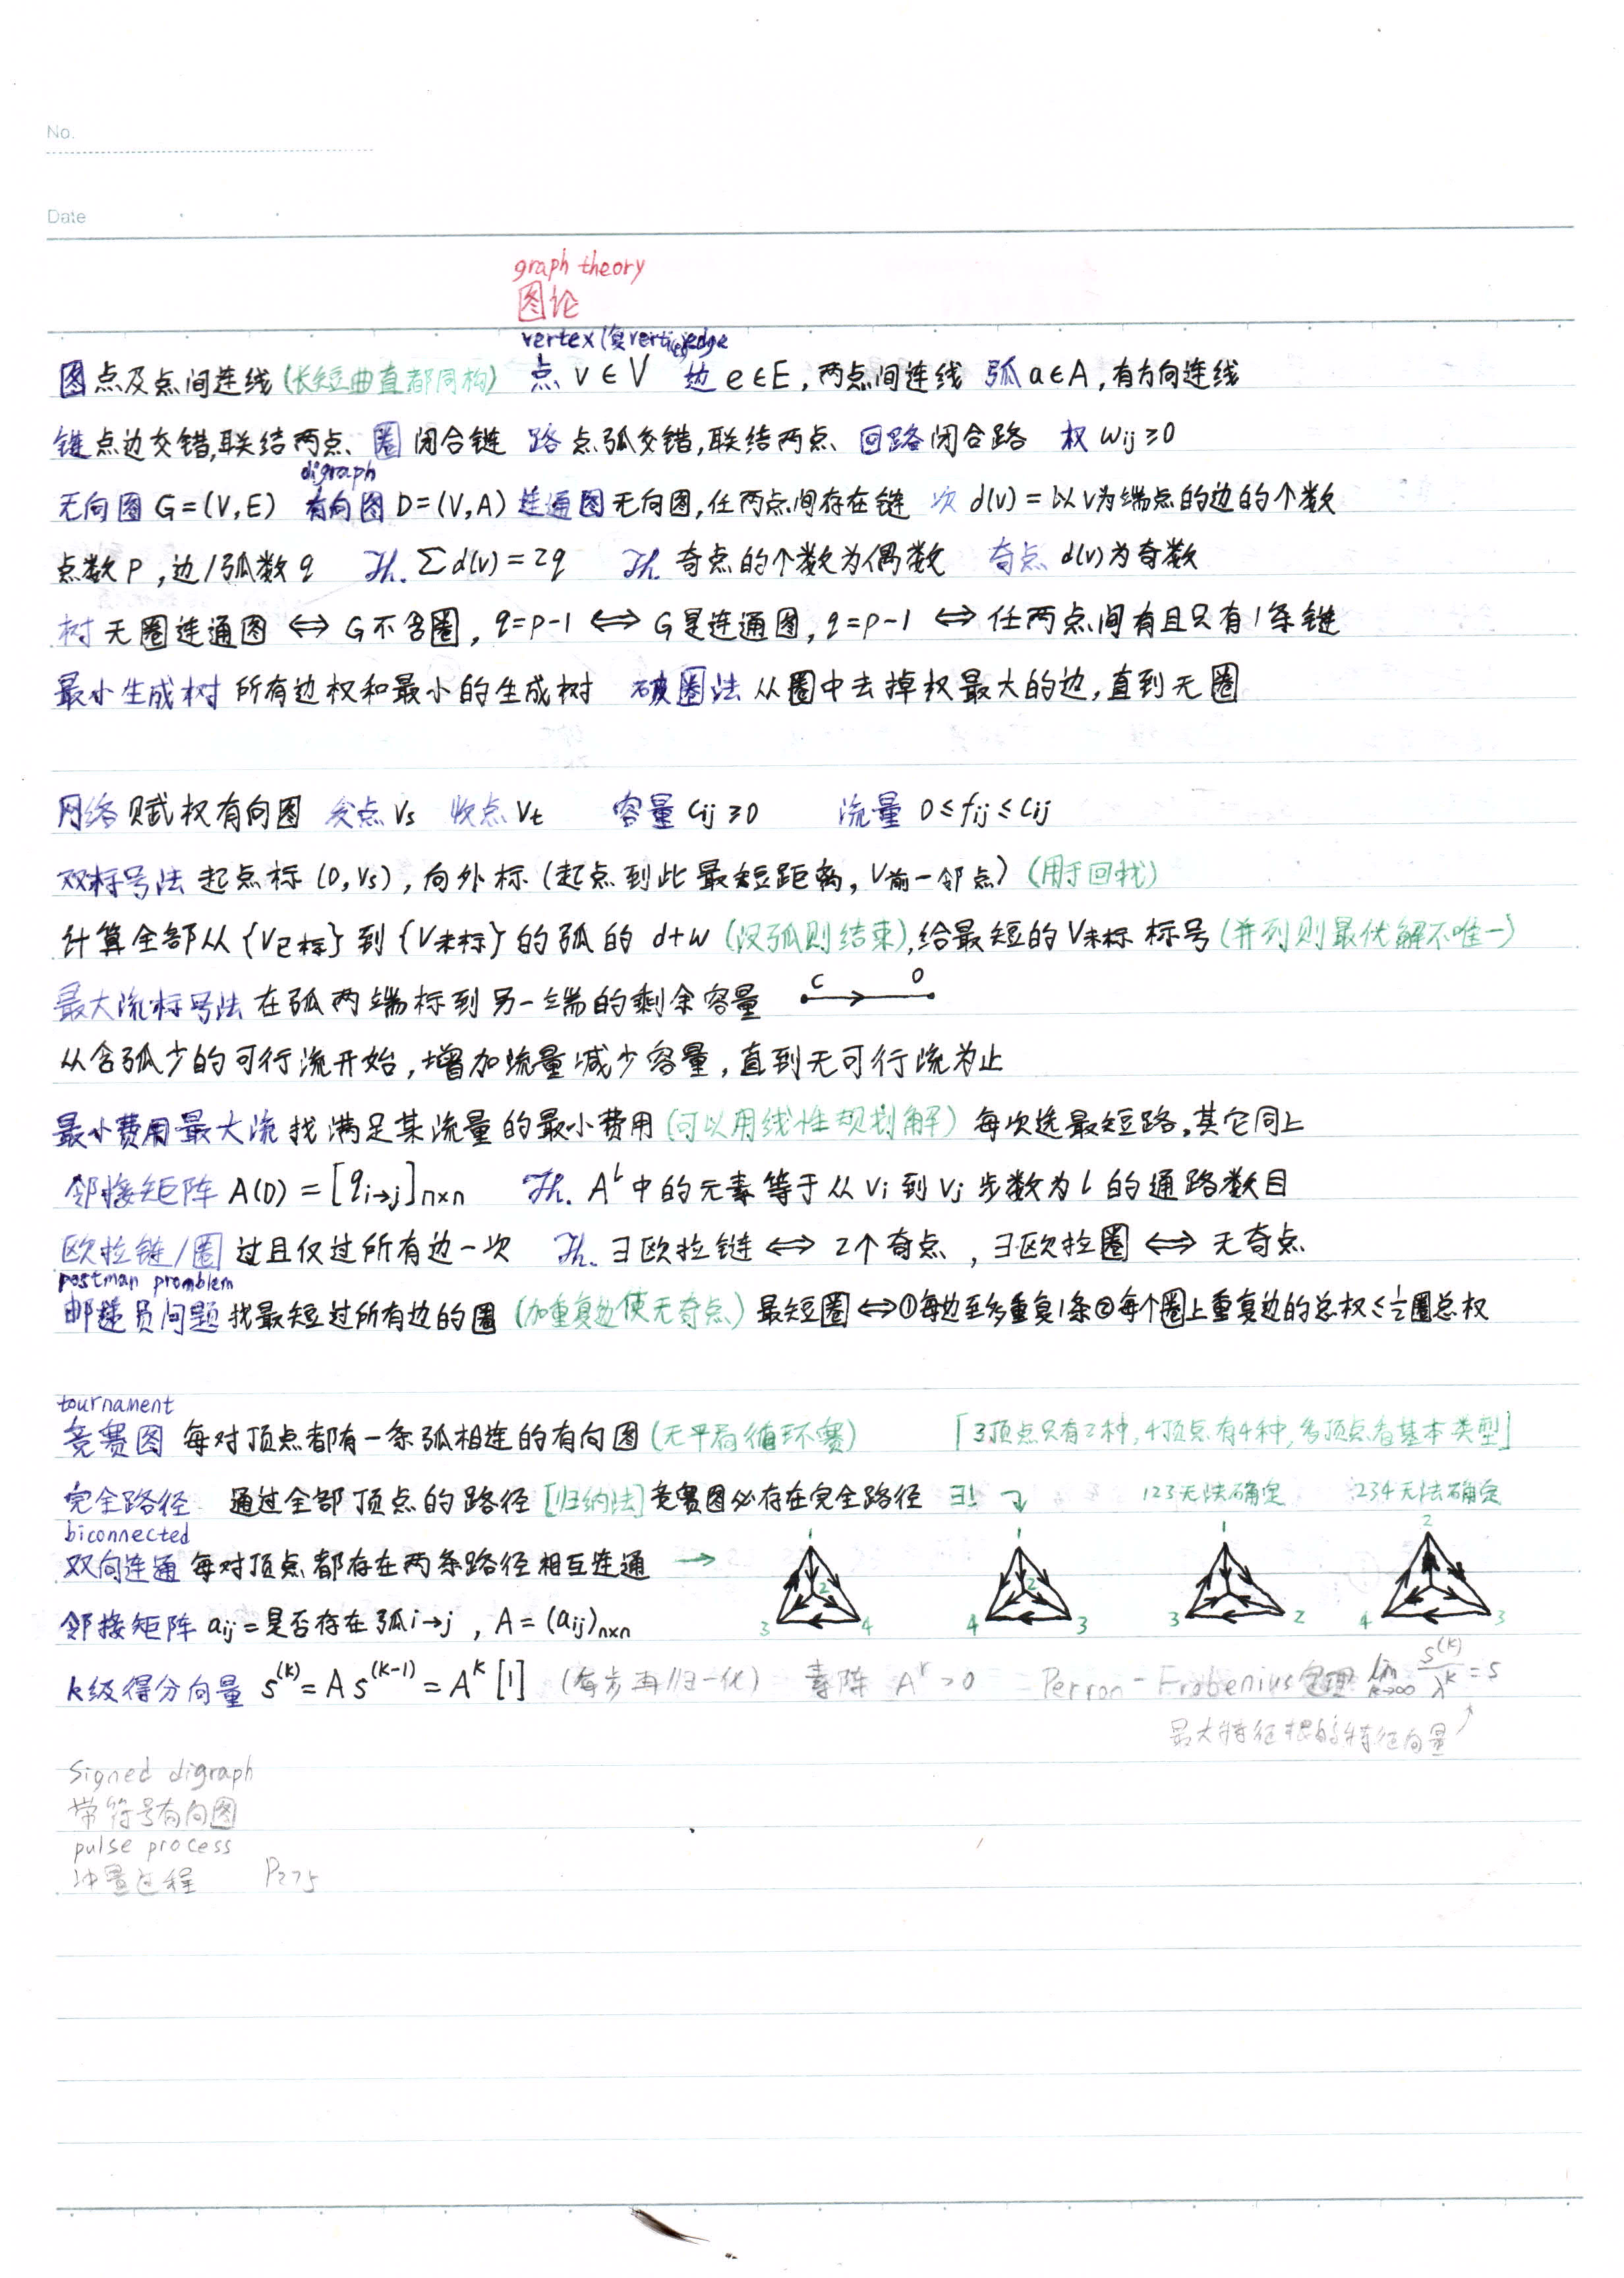 No.
Date
graph theory
图论
vertex(复vertices) edge
图 点及点间连线(长短曲直都同构) 点 v∈V 边 e∈E, 两点间连线 弧 a∈A, 有方向连线
链 点边交错,联结两点 圈 闭合链 路 点弧交错,联结两点 回路 闭合路 权 wij≥0
digraph
无向图 G=(V,E) 有向图 D=(V,A) 连通图 无向图,任两点间存在链 次 d(v)=以v为端点的边的个数
点数p,边/弧数q Th. Σd(v)=2q Th. 奇点的个数为偶数 奇点 d(v)为奇数
树 无圈连通图 ⇔ G不含圈, q=p-1 ⇔ G是连通图, q=p-1 ⇔ 任两点间有且只有1条链
最小生成树 所有边权和最小的生成树 破圈法 从圈中去掉权最大的边,直到无圈
网络 赋权有向图 发点 Vs 收点 Vt 容量 Cij≥0 流量 0≤fij≤Cij
双标号法 起点标(0,Vs), 向外标(起点到此最短距离, V前一邻点)(用于回找)
计算全部从{V已标}到{V未标}的弧的 d+w (没弧则结束),给最短的V未标 标号(并列则最优解不唯一)
最大流标号法 在弧两端标到另一端的剩余容量 C 0
从含弧少的可行流开始,增加流量减少容量,直到无可行流为止
最小费用最大流 找满足某流量的最小费用(可以用线性规划解) 每次选最短路,其它同上
邻接矩阵 A(D)=[qi→j]n×n Th. A^l 中的元素等于从 Vi 到 Vj 步数为 l 的通路数目
欧拉链/圈 过且仅过所有边一次 Th. ∃欧拉链 ⇔ 2个奇点, ∃欧拉圈 ⇔ 无奇点
postman promblem
邮递员问题 找最短过所有边的圈(加重复边使无奇点) 最短圈⇔①每边至多重复1条②每个圈上重复边的总权≤½圈总权
tournament
竞赛图 每对顶点都有一条弧相连的有向图(无平局循环赛) [3顶点只有2种,4顶点有4种,多顶点看基本类型]
完全路径 通过全部顶点的路径[归纳法]竞赛图必存在完全路径 ∃! ↴ 123无法确定 234无法确定
biconnected
双向连通 每对顶点都存在两条路径相互连通 →
1 2 3 4
1 2 4 3
1 3 2
2 4 3
邻接矩阵 aij=是否存在弧i→j, A=(aij)n×n
k级得分向量 s^(k)=As^(k-1)=A^k[1] (每步再归一化) 素阵 A^r>0 Perron-Frobenius定理 lim k→∞ s^(k)/λ^k=s
最大特征根的特征向量
Signed digraph
带符号有向图
pulse process
冲量过程 P275